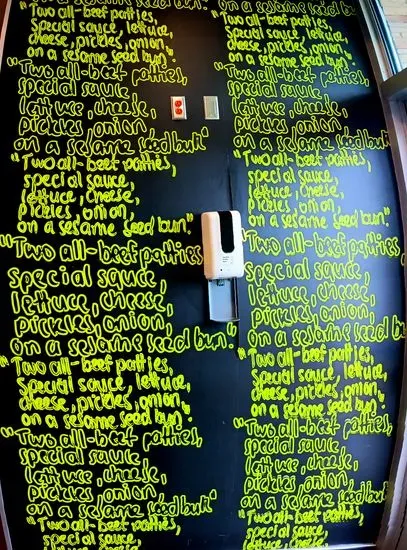 on a sesame seed bun."
"Two all-beef patties,
special sauce, lettuce,
cheese, pickles, onion,
on a sesame seed bun."
"Two all-beef patties,
special sauce,
lettuce, cheese,
pickles, onion
on a sesame seed bun"
"Two all-beef patties,
special sauce,
lettuce, cheese,
pickles, onion,
on a sesame seed bun."
"Two all-beef patties
special sauce,
lettuce, cheese,
pickles, onion,
on a sesame seed bun."
"Two all-beef patties,
special sauce, lettuce,
cheese, pickles, onion,
on a sesame seed bun."
"Two all-beef patties,
special sauce
lettuce, cheese,
pickles, onion
on a sesame seed bun"
"Two all-beef patties,
special sauce,
lettuce, cheese
on a sesame seed bun
"Two all-beef patties,
special sauce, lettuce,
cheese, pickles, onion,
on a sesame seed bun."
"Two all-beef patties,
special sauce,
lettuce, cheese,
pickles, onion
on a sesame seed bun"
"Two all-beef patties,
special sauce,
lettuce, cheese,
pickles, onion,
on a sesame seed bun."
"Two all-beef patties,
special sauce,
lettuce, cheese,
pickles, onion,
on a sesame seed bun
"Two all-beef patties,
special sauce, lettuce,
cheese, pickles, onion,
on a sesame seed bun."
"Two all-beef patties,
special sauce
lettuce, cheese,
pickles, onion
on a sesame seed bun"
"Two all-beef patties,
special sauce,
lettuce, cheese,